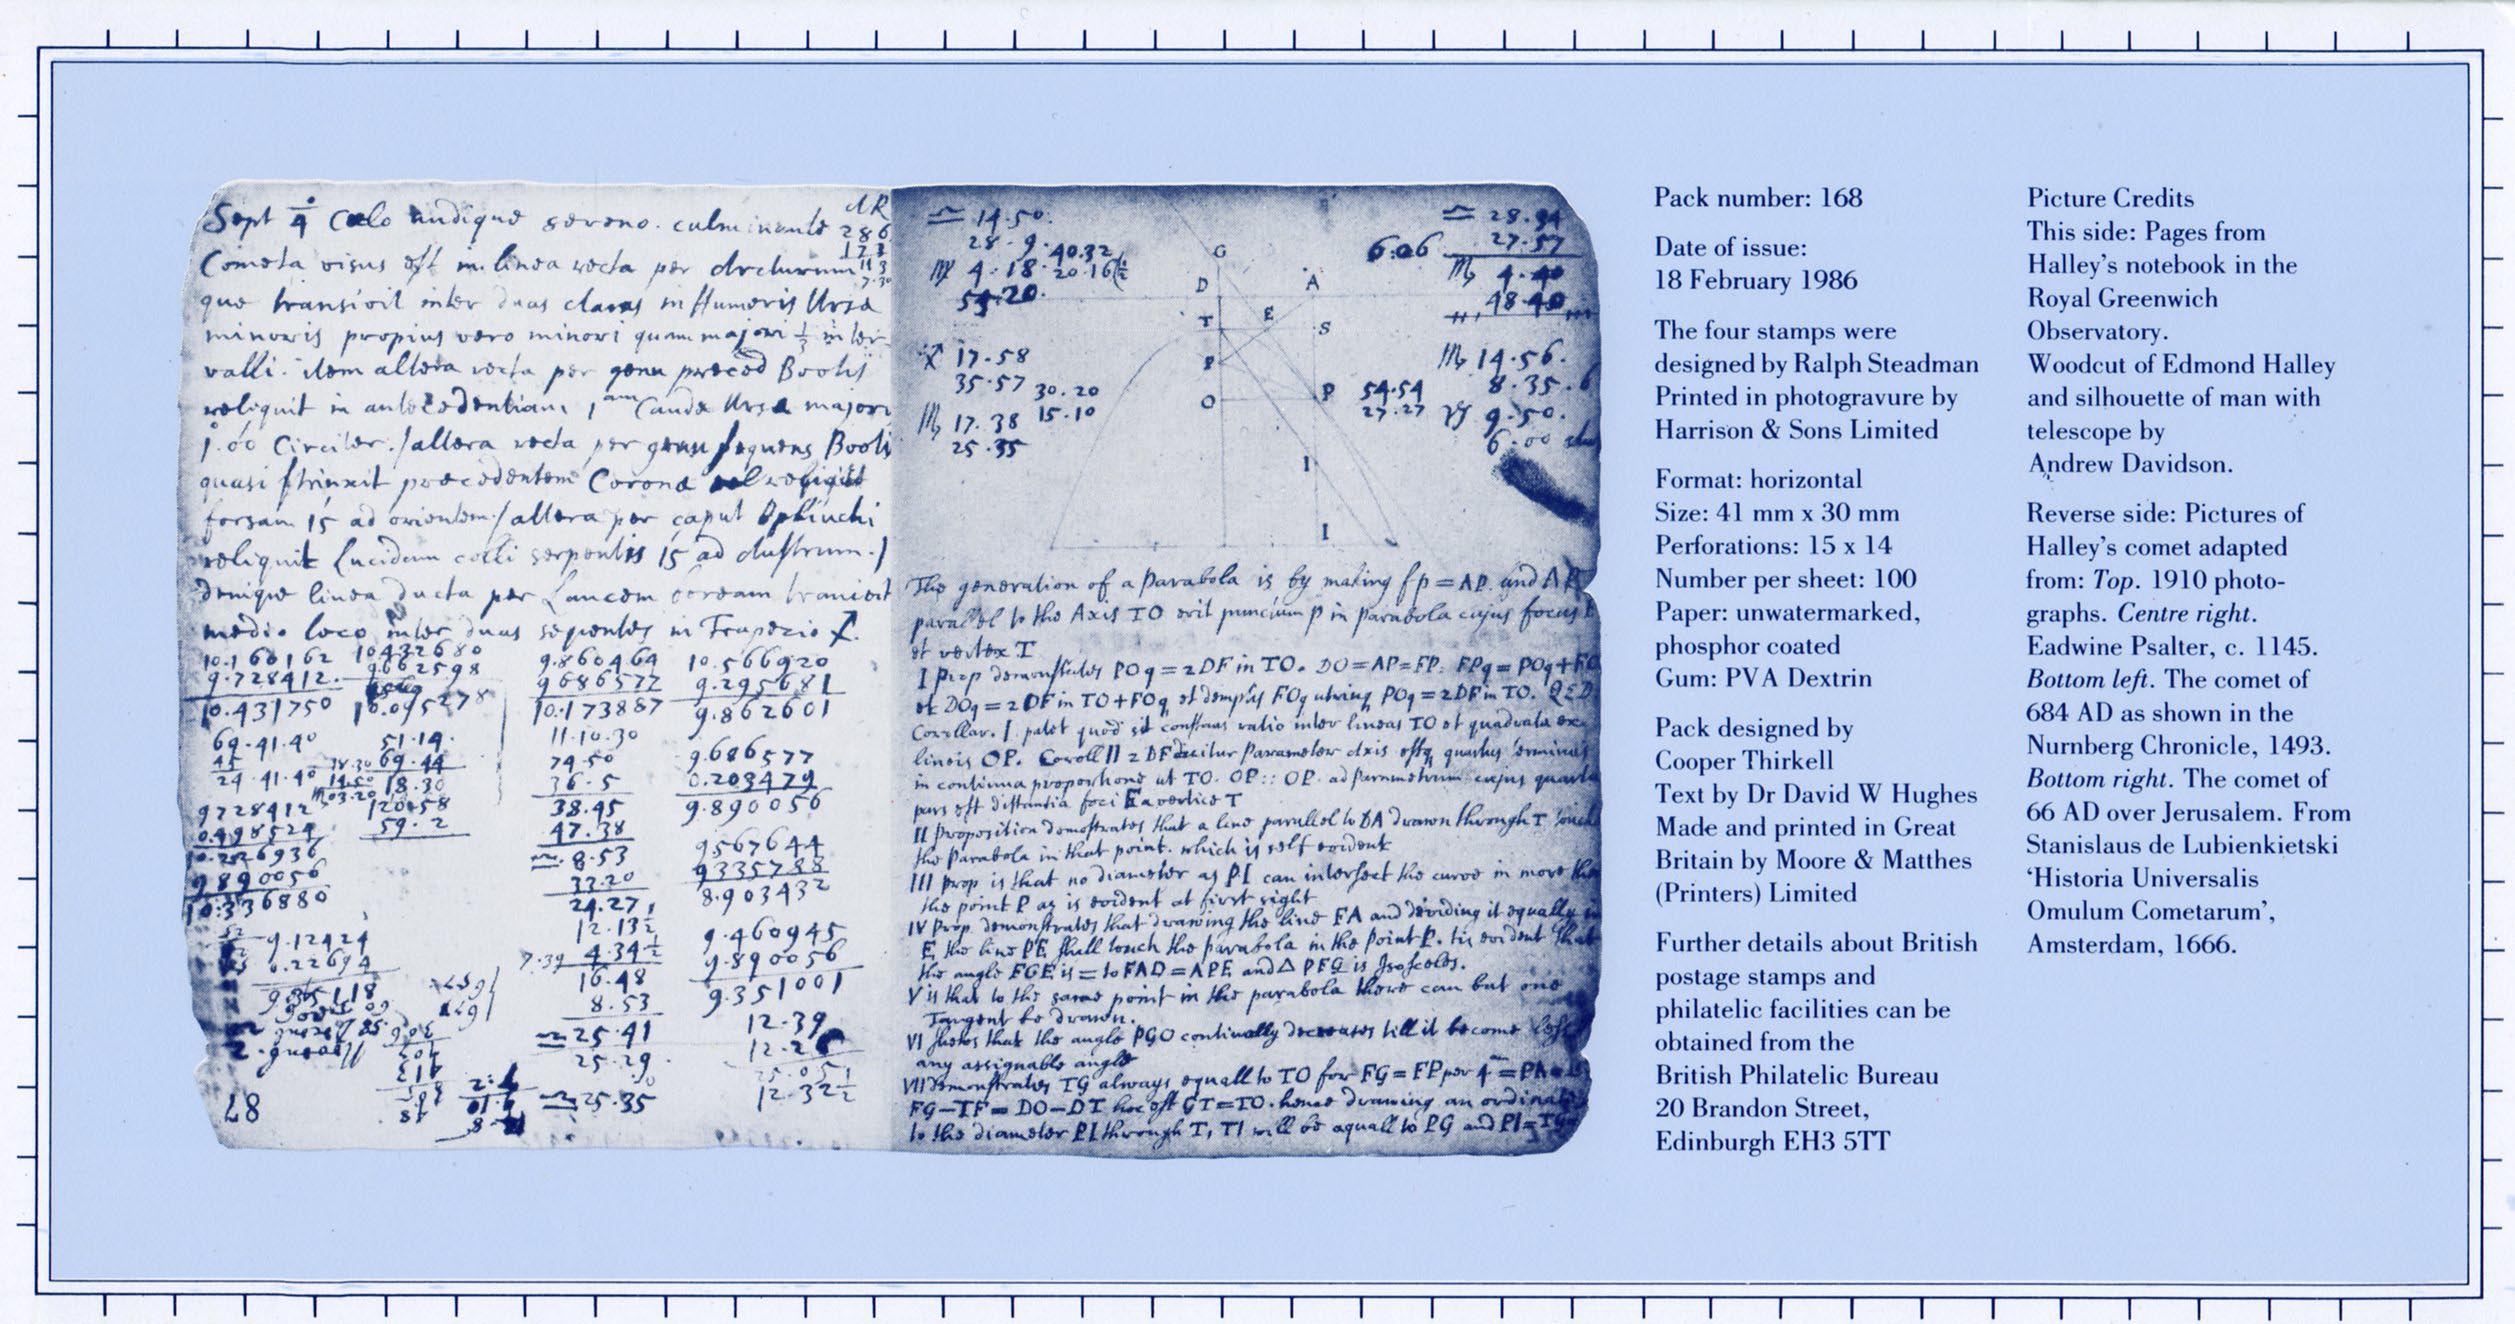 Sept 4 Cælo undique sereno. culminante
Cometa visus est in linea recta per Arcturum
que transivit inter duas claras in Humeris Ursæ
minoris propius vero minori quam majori 1/3 inter
valli. item altera recta per genu præced Bootis
reliquit in antecedentiam 1am Caudæ Ursæ majoris
1°.00 Circiter. / altera recta per genu sequens Bootis
quasi strinxit præcedentem Coronæ reliquit
forsan 15 ad orientem / altera per caput Ophiuchi
reliquit Lucidam colli serpentis 15 ad Austrum. /
denique linea ducta per Lancem boream transivit
medio loco inter duas sequentes in Trapezio
10.160162 10432680 9.860464 10.566920
9.728412. 9662598 9686577 9.295681
10.431750 10.095278 10.173887 9.862601
69.41.40 51.14. 11.10.30
45 69.44 74.50 9.686577
24.41.40 18.30 36.5 0.203479
9728412 120.58 38.45 9.890056
0.498524 59.2 47.38
10.226936 8.53 9567644
9890056 33.20 9335788
10.336880 24.27 8.903432
12.13½
9.12424 4.34½ 9.460945
0.22694 7.39 16.48 9.890056
9.35118 8.53 9.351001
25.41 12.39
25.29
25.35 12.32½
87
14.50.
28.9. 40.32
4.18. 20.16½
54.20.
17.58
35.57 30.20
17.38 15.10
25.35
G
D A
T E S
F
O P
I
I
28.34
6.06 27.57
4.40
48.40
14.56.
54.54 8.35.
27.27 9.50.
6.00
The generation of a Parabola is by making fp = AP. and AP
parallel to the Axis TO erit punctum P in parabola cujus focus F
et vertex T
I Prop demonstrates POq = 2DF in TO. DO = AP = FP. FPq = POq + FO
et DOq = 2DF in TO + FOq et demptis FOq utrinq POq = 2DF in TO. QED
Corollar. I patet quod sit constans ratio inter lineas TO et quadrata ex
lineis OP. Coroll II 2DF dicitur Parameter Axis estq quartus terminus
in continua proportione ut TO. OP :: OP. ad parametrum cujus quarta
pars est distantia foci F a vertice T
II Proposition demostrates that a line parallel to DA drawn through T touch
the Parabola in that point. which is self evident
III prop is that no diameter as PI can intersect the curve in more then
the point P as is evident at first sight
IV Prop. demonstrates that drawing the line FA and deviding it equally in
E the line PE shall touch the parabola in the point P. tis evident that
the angle FGE is = to FAD = APE and Δ PFG is Isosceles.
V is that to the same point in the parabola there can but one
Tangent be drawn.
VI shews that the angle PGO continually decreases till it become less
any assignable angle
VII demonstrates TG always equall to TO for FG = FP per 4 = PA
FG – TF = DO – DT hoc est GT = TO. hence drawing an ordinate
to the diameter PI through T, TI will be equall to PG and PI = TG
Pack number: 168
Date of issue:
18 February 1986
The four stamps were
designed by Ralph Steadman
Printed in photogravure by
Harrison & Sons Limited
Format: horizontal
Size: 41 mm x 30 mm
Perforations: 15 x 14
Number per sheet: 100
Paper: unwatermarked,
phosphor coated
Gum: PVA Dextrin
Pack designed by
Cooper Thirkell
Text by Dr David W Hughes
Made and printed in Great
Britain by Moore & Matthes
(Printers) Limited
Further details about British
postage stamps and
philatelic facilities can be
obtained from the
British Philatelic Bureau
20 Brandon Street,
Edinburgh EH3 5TT
Picture Credits
This side: Pages from
Halley's notebook in the
Royal Greenwich
Observatory.
Woodcut of Edmond Halley
and silhouette of man with
telescope by
Andrew Davidson.
Reverse side: Pictures of
Halley's comet adapted
from: Top. 1910 photo-
graphs. Centre right.
Eadwine Psalter, c. 1145.
Bottom left. The comet of
684 AD as shown in the
Nurnberg Chronicle, 1493.
Bottom right. The comet of
66 AD over Jerusalem. From
Stanislaus de Lubienkietski
'Historia Universalis
Omulum Cometarum',
Amsterdam, 1666.